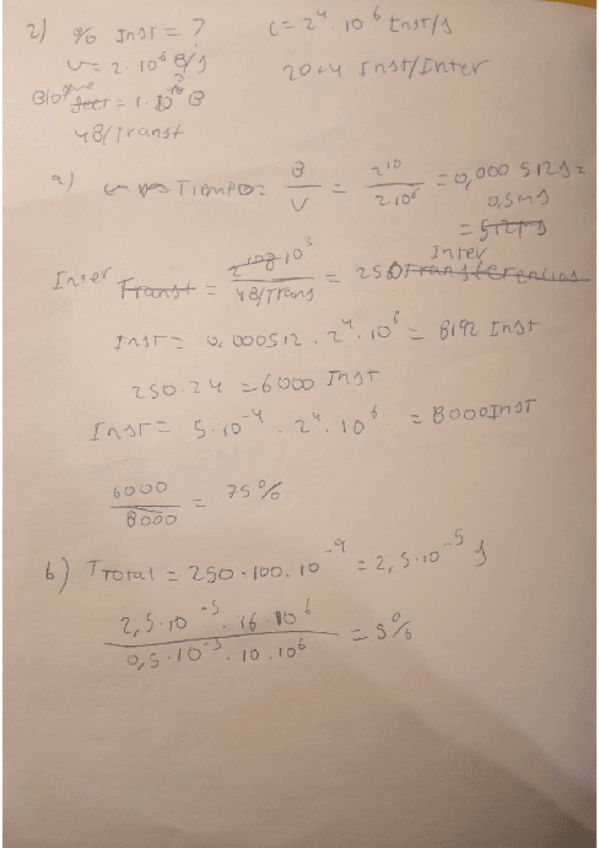 2) % Inst = ?
C = 2⁴ · 10⁶ Inst/s
v = 2 · 10⁶ B/s
20+4 Inst/Inter
Bloque = 1 · 10³ B
4B/Transf
a) Tiempo = B/V = 2¹⁰/2·10⁶ = 0,000 512s =
0,5ms
= 512μs
Inter Transf = 10³/4B/Trans = 250 Transferencias Inter
Inst = 0,000512 · 2⁴ · 10⁶ = 8192 Inst
250 · 24 = 6000 Inst
Inst = 5 · 10⁻⁴ · 2⁴ · 10⁶ = 8000 Inst
6000/8000 = 75%
b) TTotal = 250 · 100 · 10⁻⁹ = 2,5 · 10⁻⁵ s
2,5 · 10⁻⁵ · 16 · 10⁶ / 0,5 · 10⁻³ · 10 · 10⁶ = 5%